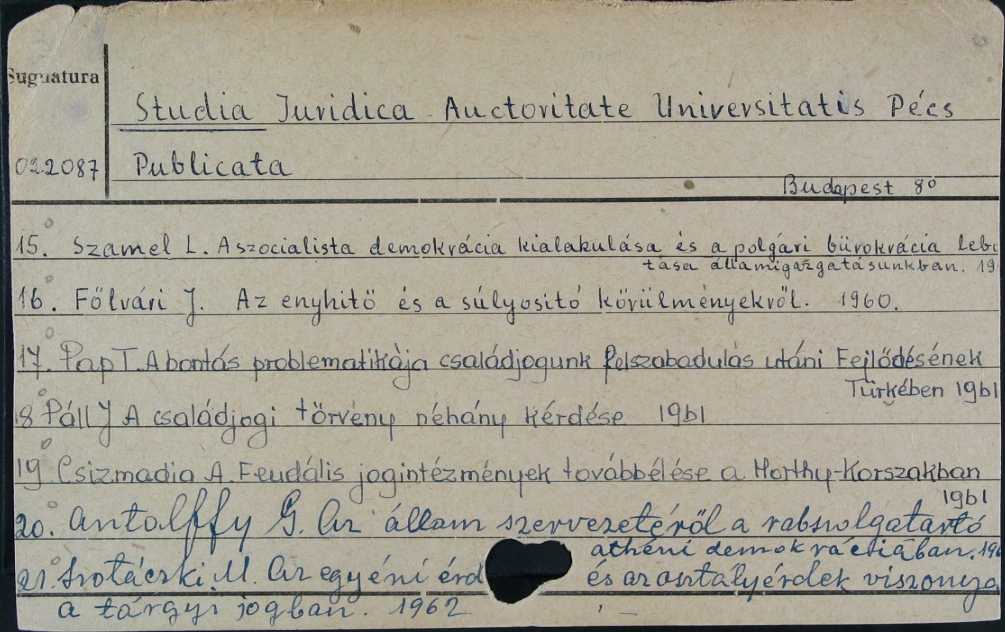 Sugnatura
Studia Juridica Auctoritate Universitatis Pécs
022087
Publicata
Budapest 8°
15. Szamel L. A szocialista demokrácia kialakulása és a polgári bürokrácia lebo
tása államigazgatásunkban. 19
16. Fölvári J. Az enyhitö és a súlyositó körülményekröl. 1960.
17. Pap T. A bontás problematikája családjogunk felszabadulás utáni Fejlődésének
Türkében 1961
18 Páll J A családjogi törvény néhány kérdése 1961
19 Csizmadia A. Feudális jogintézmények továbbélése a Horthy-Korszakban
1961
20. Antalffy G. Az állam szervezetéről a rabszolgatartó
athéni demokráciában. 196
21. Szotáczki M. Az egyéni érd és az osztályérdek viszonya
a tárgyi jogban. 1962